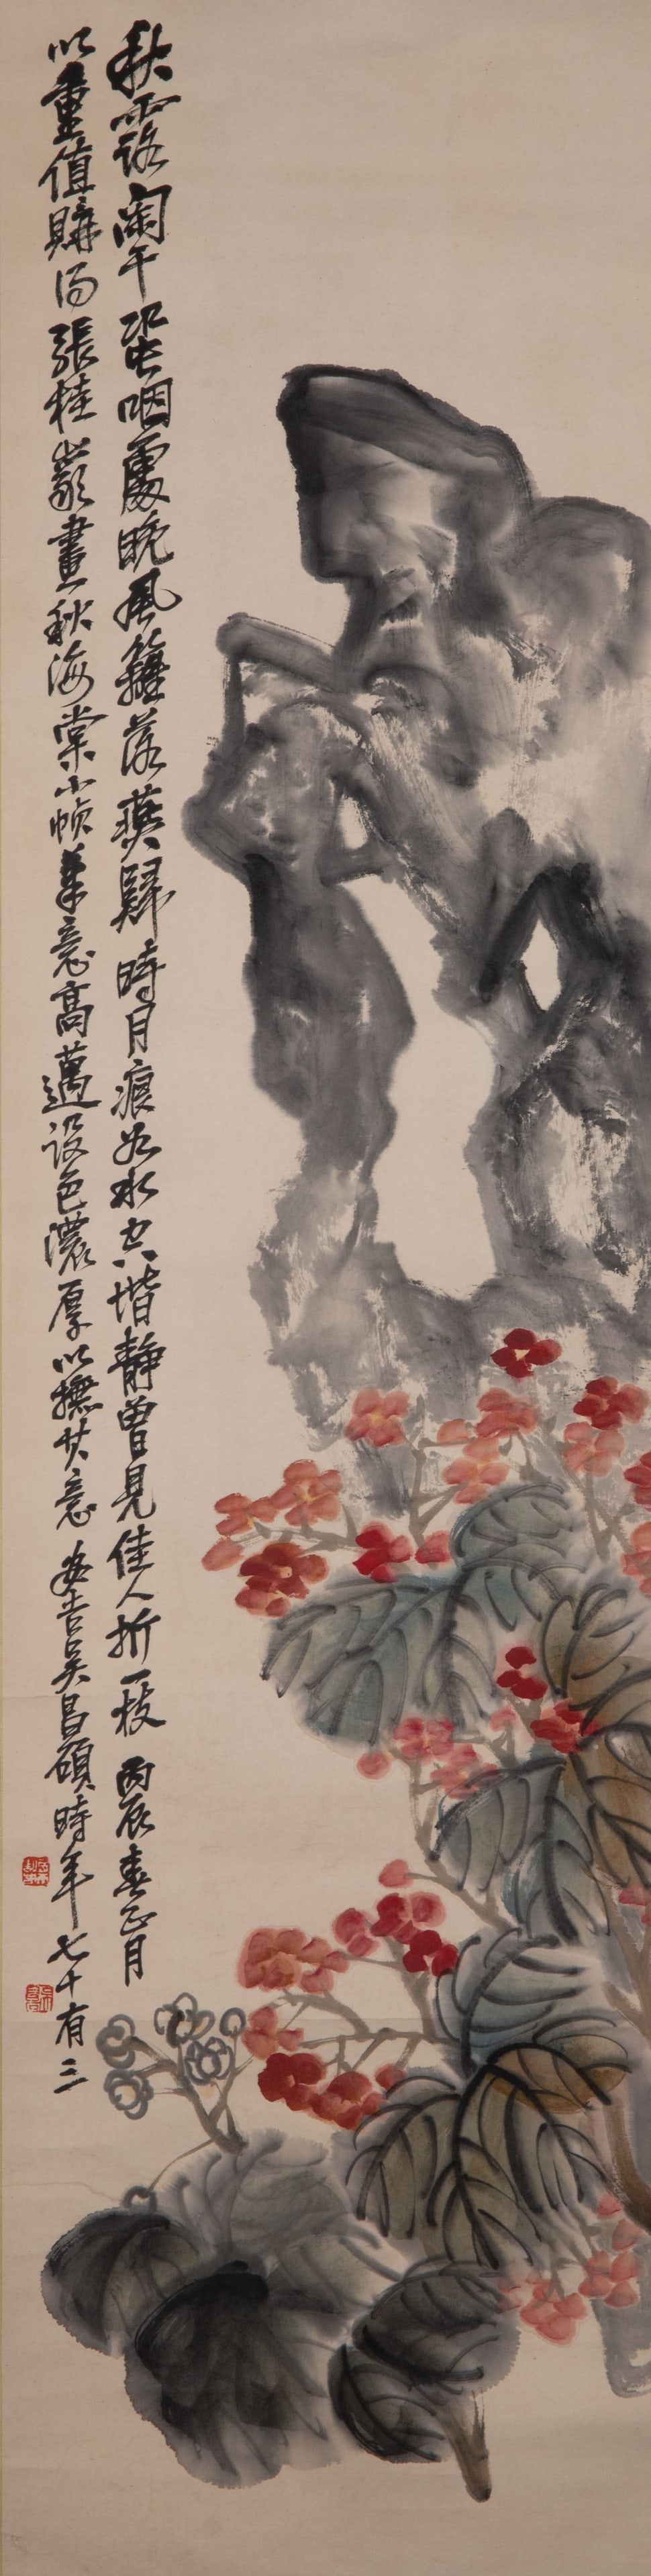 秋露闌干蛩咽處晚風籬落燕歸時月痕如水空堦靜曾見佳人折一枝 丙辰春正月
以重值購得張桂巖畫秋海棠小幀筆意高邁設色濃厚以橅其意 安吉吳昌碩時年七十有三